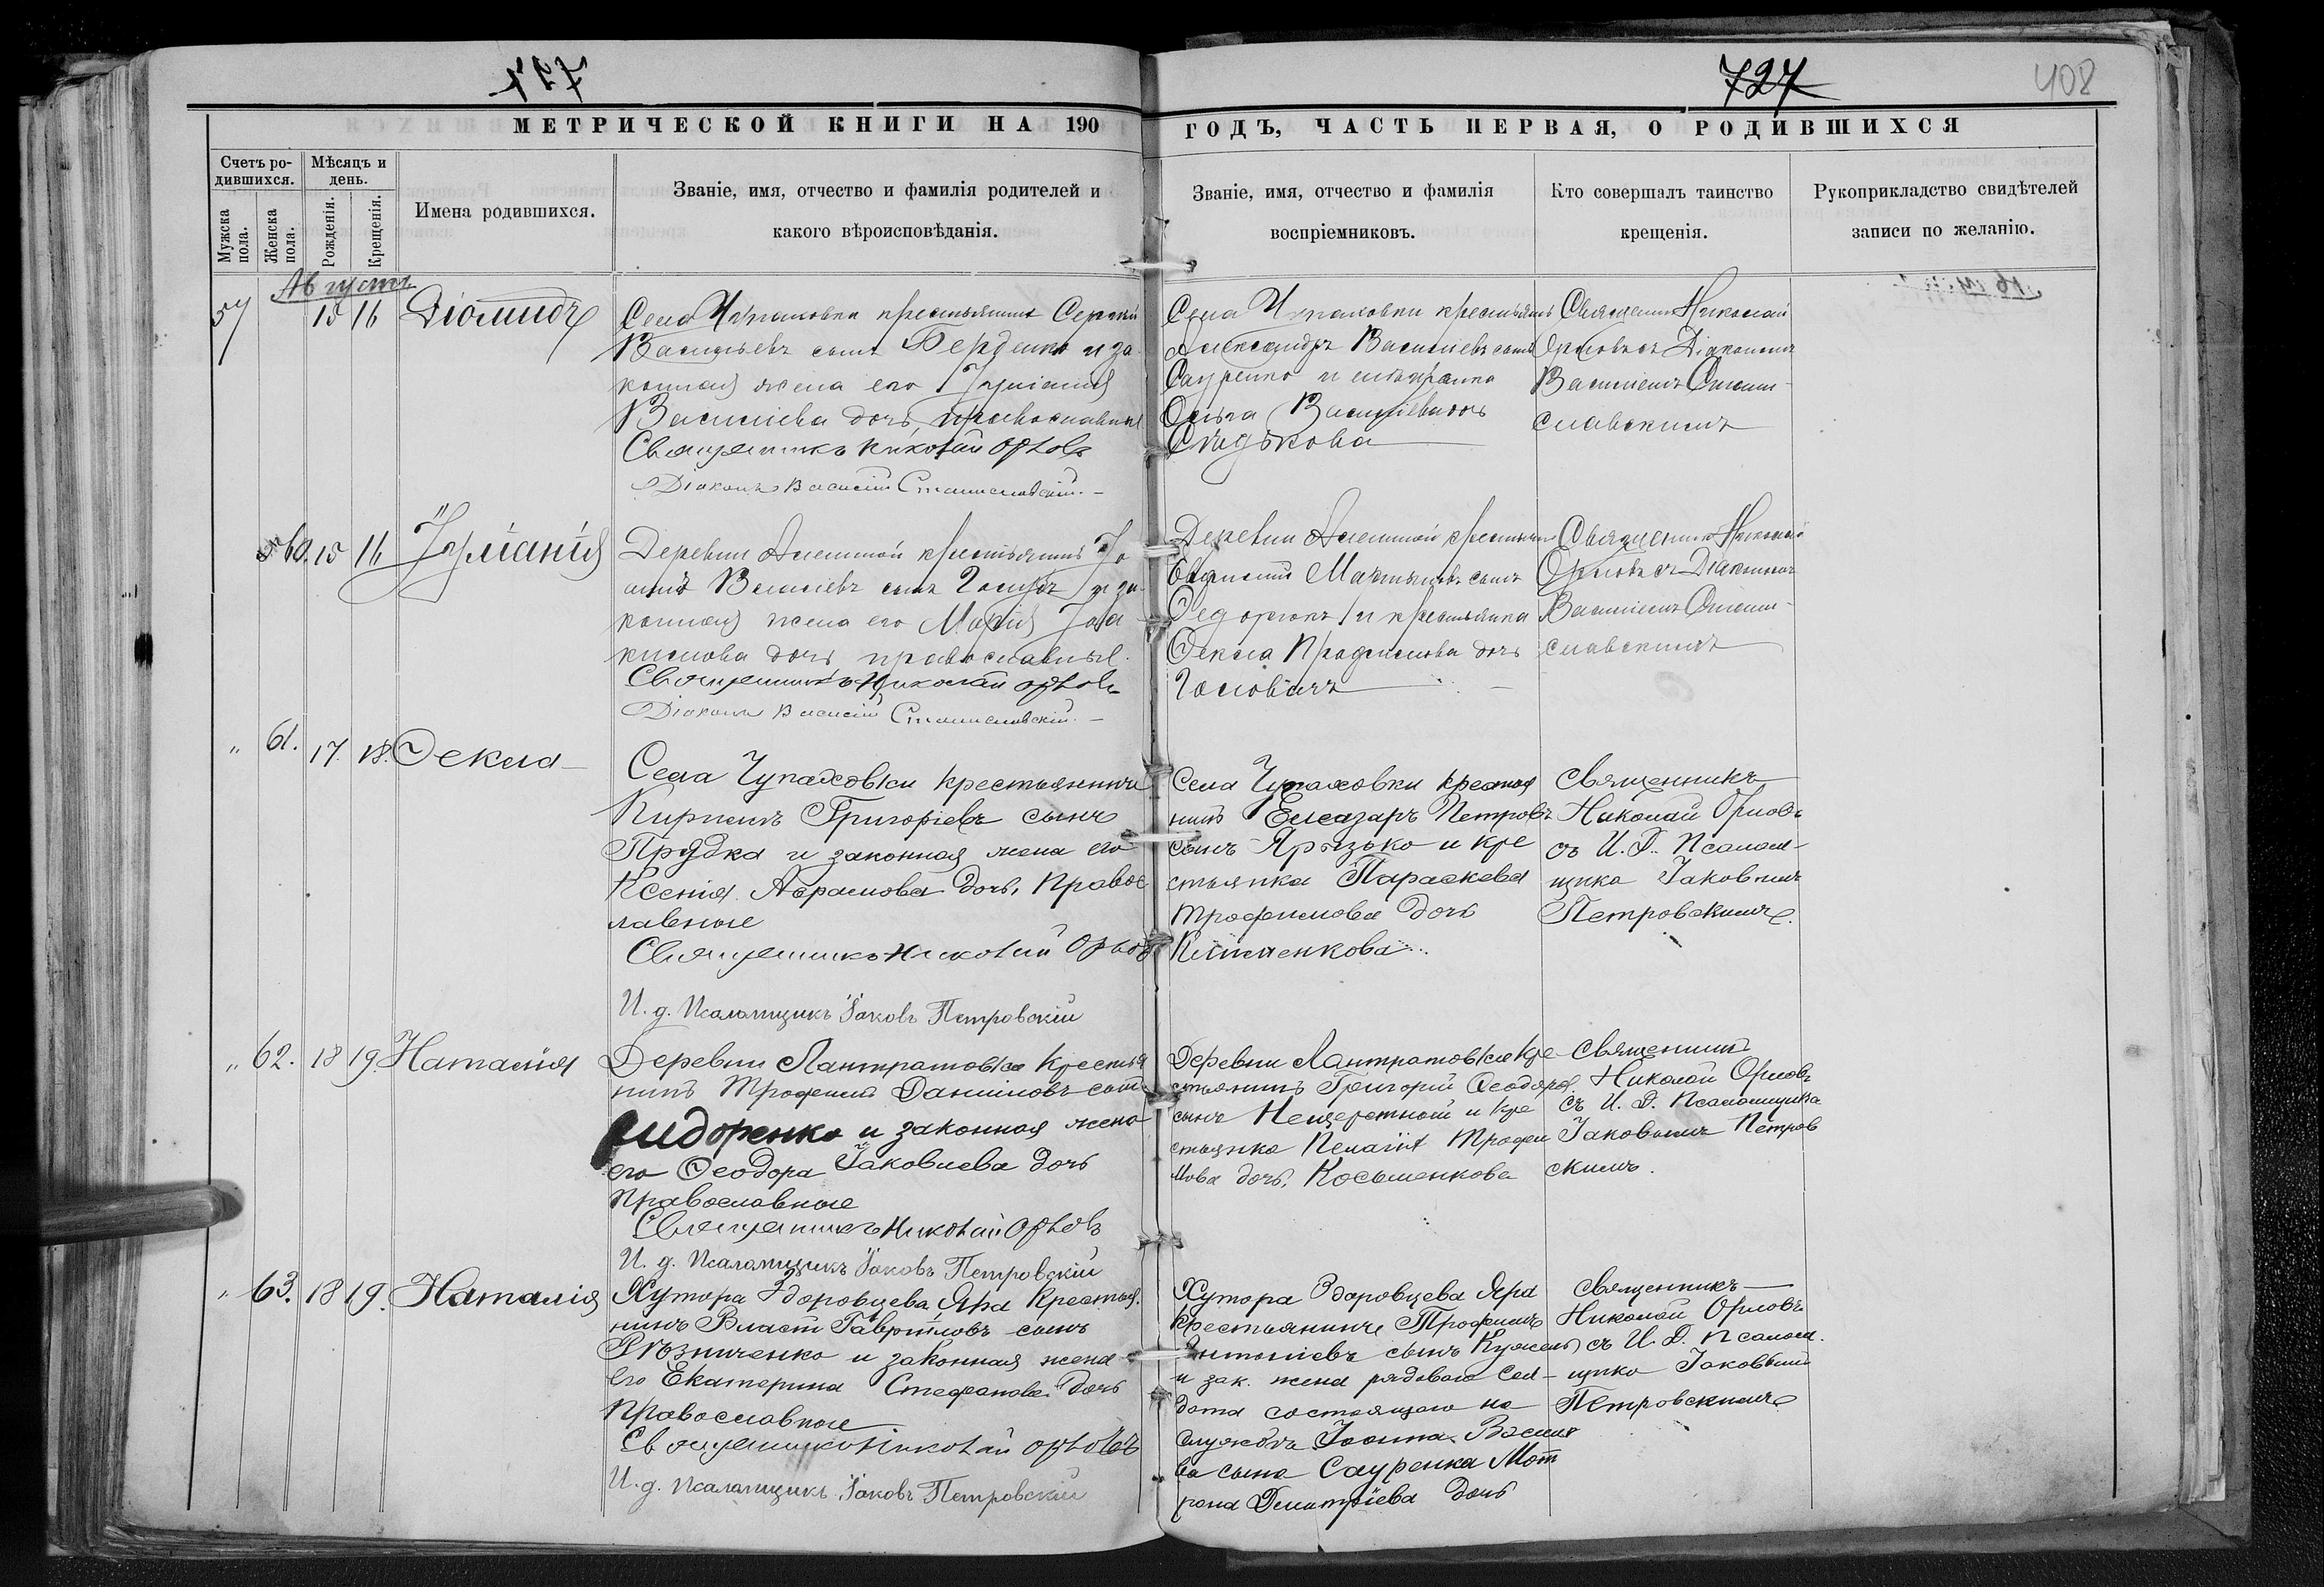 727
408
МЕТРИЧЕСКОЙ КНИГИ НА 190
ГОДЪ, ЧАСТЬ ПЕРВАЯ, О РОДИВШИХСЯ
Счетъ ро-
дившихся.
Мужска
пола.
Женска
пола.
Мѣсяцъ и
день.
Рожденія.
Крещенія.
Имена родившихся.
Званіе, имя, отчество и фамилія родителей и
какого вѣроисповѣданія.
Званіе, имя, отчество и фамилія
воспріемниковъ.
Кто совершалъ таинство
крещенія.
Рукоприкладство свидѣтелей
записи по желанію.
Августъ
57 15 16 Діомидъ
Села Чупаховки крестьянинъ Сергій
Васильевъ сынъ Бердинко и за-
конная жена его Іуліанія
Василіева дочь, православные
Священникъ Николай Орловъ
Діаконъ Василій Станиславскій.
Села Чупаховки крестьянинъ
Александръ Василіевъ сынъ
Сауренко и
Ольга Василіева дочь
Сѣдькова
Священникъ Николай
Орловъ съ Діакономъ
Василіемъ Стани-
славскимъ
60. 15 16 Іуліанія
Деревни Алешиной крестьянинъ Іо
аннъ Власіевъ сынъ и за-
конная жена его Марія Іоа
кимова дочь, православные.
Священникъ Николай Орловъ
Діаконъ Василій Станиславскій.
Деревни Алешиной крестьянинъ
Мартыновъ сынъ
Ѳедорюкъ и крестьянка
Ѳекла дочь
Священникъ Николай
Орловъ съ Діакономъ
Василіемъ Стани-
славскимъ
„ 61. 17. 18. Ѳекла
Села Чупаховки крестьянинъ
Кириллъ Григоріевъ сынъ
Прудка и законная жена его
Ксенія Абрамова дочь, правос
лавные
Священникъ Николай Орловъ
И. д. Псаломщикъ Іаковъ Петровскій
Села Чупаховки крестья
нинъ Елеазаръ Петровъ
сынъ Ярызько и кре
стьянка Параскева
Трофимова дочь
Клименкова
Священникъ
Николай Орловъ
съ И. Д. Псалом-
щика Іаковомъ
Петровскимъ.
„ 62. 18 19. Наталія
Деревни Лантратовки крестья
нинъ Трофимъ Даніиловъ сынъ
Сидоренко и законная жена
его Ѳеодора Іаковлева дочь
православные
Священникъ Николай Орловъ
И. д. Псаломщикъ Іаковъ Петровскій
Деревни Лантратовки кре-
стьянинъ Григорій Ѳеодоров.
сынъ Нещеретній и кре
стьянка Пелагія Трофи
мова дочь, Косьменкова
Священникъ
Николай Орловъ
съ И. Д. Псаломщика
Іаковомъ Петров
скимъ.
„ 63. 18 19. Наталія
Хутора Здоровцева Яра крестья.
нинъ Власій Гавріиловъ сынъ
Рѣзниченко и законная жена
его Екатерина Стефанова дочь
православные
Священникъ Николай Орловъ
И. д. Псаломщикъ Іаковъ Петровскій
Хутора Здоровцева Яра
крестьянинъ Трофимъ
Антоніевъ сынъ Кужель
и зак. жена рядоваго сол-
дата состоящаго на
службѣ Іоанна Василіе
ва сына Сауренка Мот
рона Димитріева дочь
Священникъ
Николай Орловъ
съ И. Д. Псалом.
щика Іаковомъ
Петровскимъ